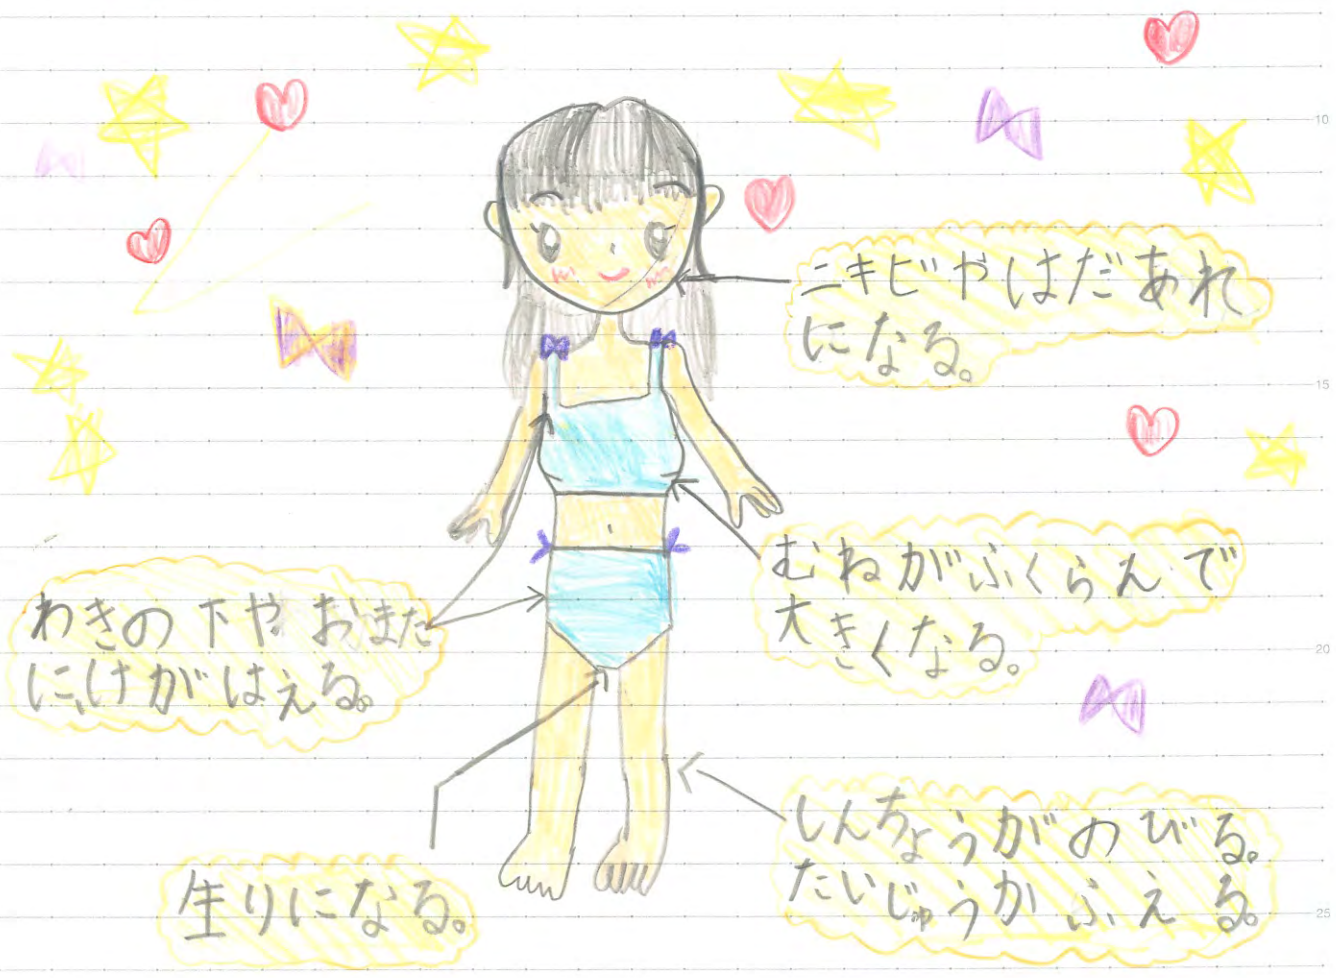 ニキビやはだあれ
になる。
むねがふくらんで
大きくなる。
わきの下やおまた
に、けがはえる。
しんちょうがのびる。
たいじゅうがふえる。
生りになる。
10
15
20
25